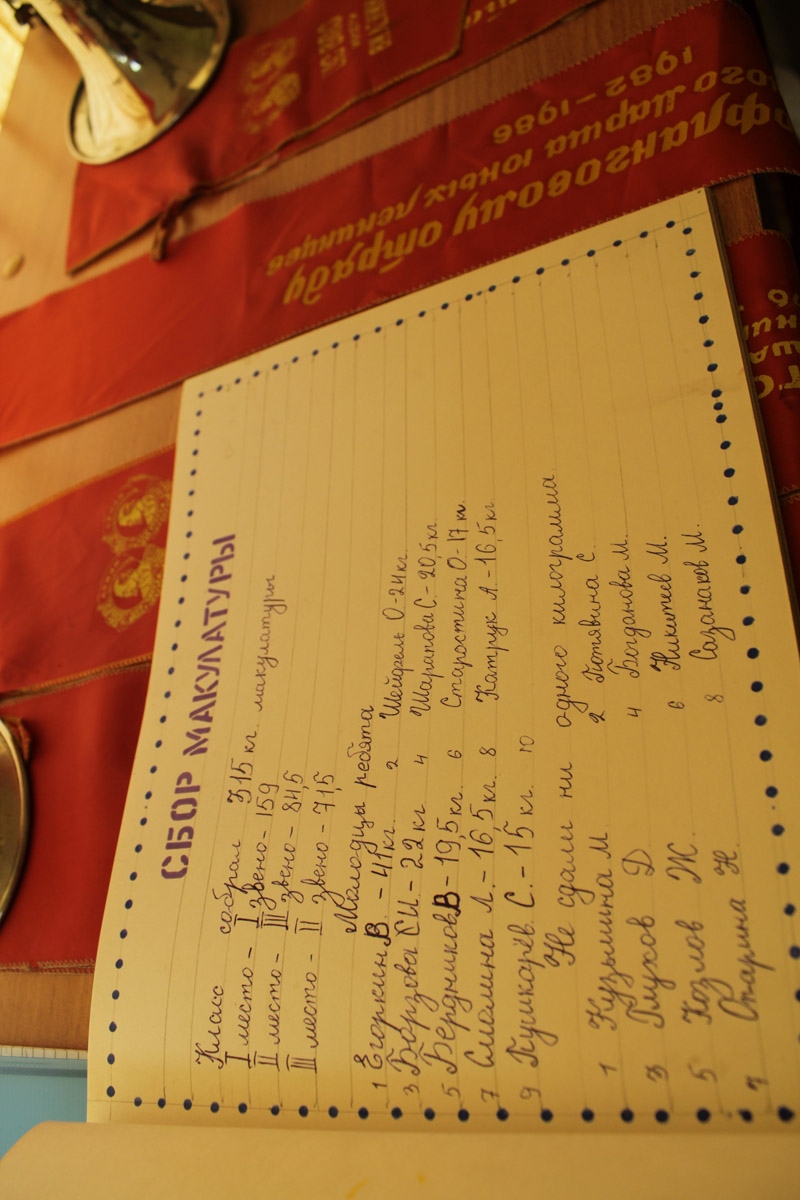 1982–1986
марша юных ленинцев
фланговому отряду
СБОР МАКУЛАТУРЫ
Класс собрал 315 кг. макулатуры
I место – I звено – 159
II место – III звено – 84,5
III место – II звено – 71,5
Молодцы ребята
1 Егоркин В. – 41 кг. 2 Шейфель О – 24 кг.
3 Борзова СИ. – 22 кг 4 Шарапова С. – 20,5 кг.
5 Бердников В – 19,5 кг. 6 Старостина О – 17 кг.
7 Смолина Л. – 16,5 кг. 8 Катрук А. – 16,5 кг
9 Пушкарёв С. – 15 кг. 10
Не сдали ни одного килограмма
1 Кузьмина М. 2 Потявина С.
3 Глухов Д 4 Богданова М.
5 Козлов Ж. 6 Никитеев М.
7 Спарина Н. 8 Сазанаков М.